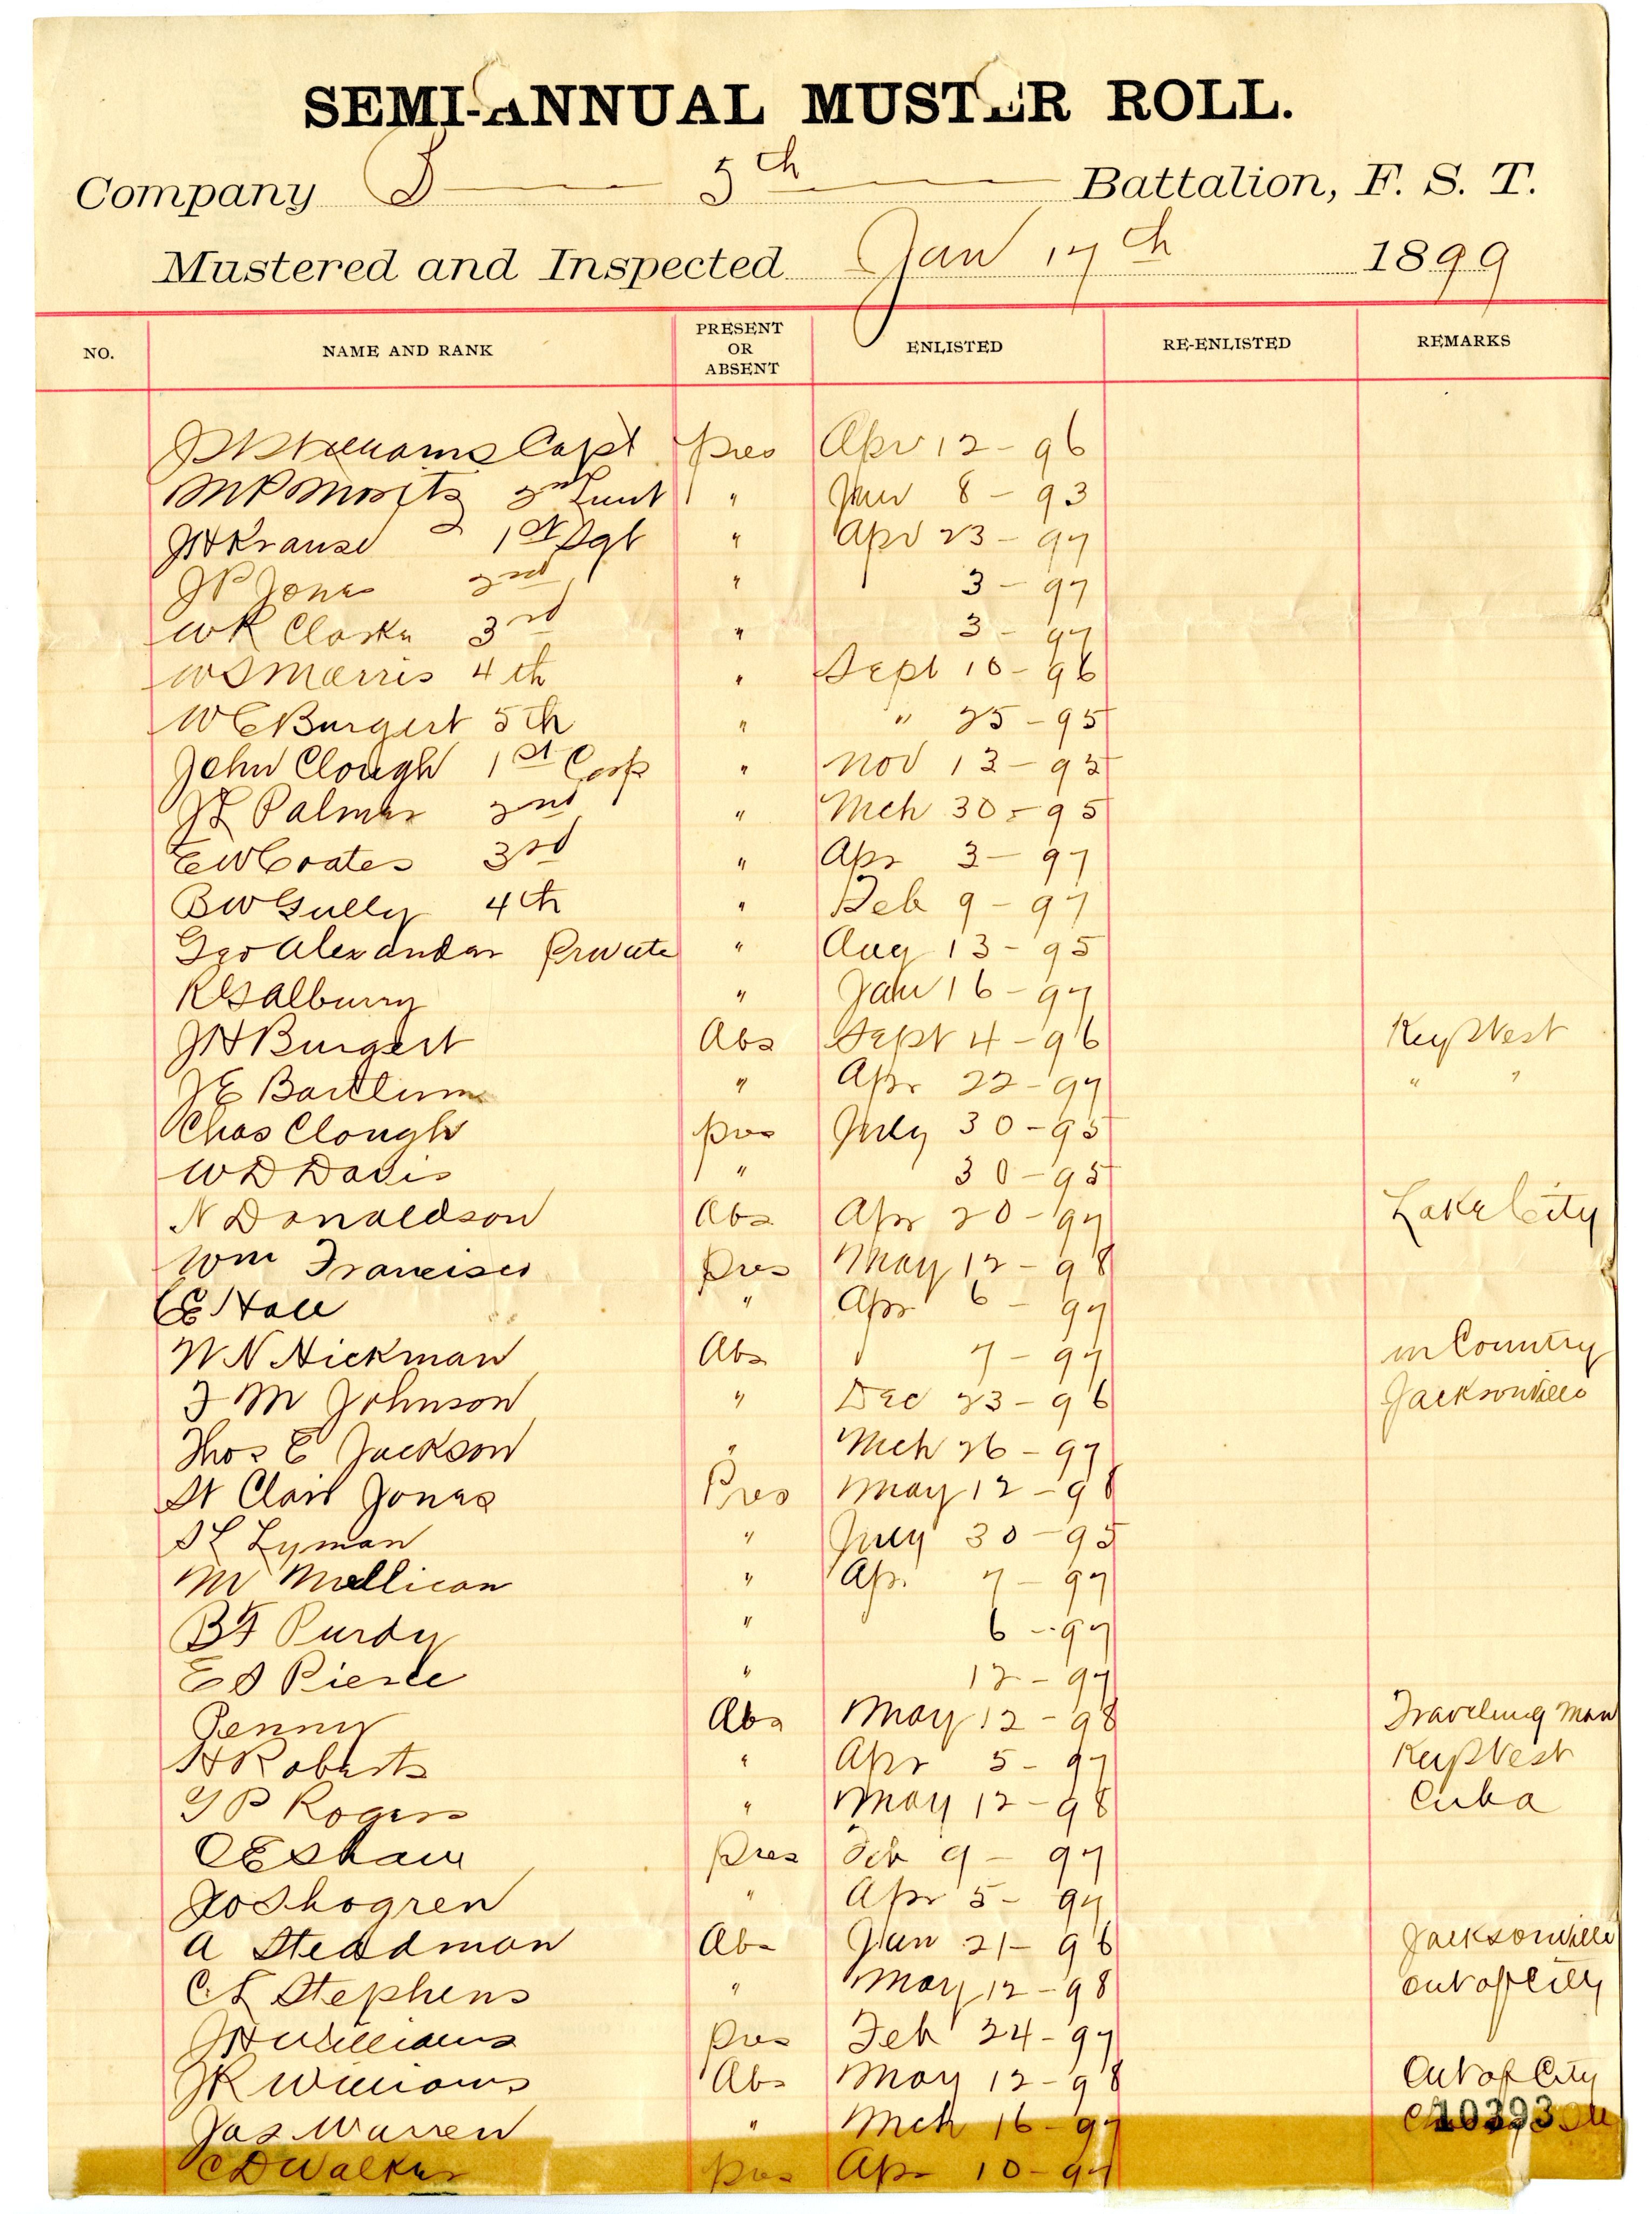 SEMI-ANNUAL MUSTER ROLL.
Company 5th Battalion, F. S. T.
Mustered and Inspected Jan 17th 1899
NO. NAME AND RANK PRESENT OR ABSENT ENLISTED RE-ENLISTED REMARKS
Williams Capt pres Apr 12 - 96
M P Moritz 2nd " 8 - 93
J H Krause 1st Sgt " Apr 23 - 97
J P Jones 2nd " 3 - 97
W R Clarke 3rd " 3 - 97
W S Morris 4th " Sept 10 - 96
W C Burgert 5th " " 25 - 95
John Clough 1st Corp " Nov 13 - 95
J L Palmer 2nd " Mch 30 - 95
E W Coates 3rd " Apr 3 - 97
B W Gully 4th " Feb 9 - 97
Geo Alexander Private " Aug 13 - 95
" Jan 16 - 97
J H Burgert Abs Sept 4 - 96 Key West
J E Bartlum " Apr 22 - 97 " "
Chas Clough pres July 30 - 95
W D Davis " 30 - 95
N Donaldson Abs Apr 20 - 97 Lake City
Wm Francisco pres May 12 - 98
C E Hall " Apr 6 - 97
W N Hickman Abs 7 - 97 in Country
F M Johnson " Dec 23 - 96 Jacksonville
Thos E Jackson " Mch 26 - 97
St Clair Jones Pres May 12 - 98
S L Lyman " July 30 - 95
M Mullican " Apr 7 - 97
B F Purdy " 6 - 97
E S Pierce " 12 - 97
Penny Abs May 12 - 98 Traveling Man
H Roberts " Apr 5 - 97 Key West
P Rogers " May 12 - 98 Cuba
C E Shaw pres Feb 9 - 97
J O Shogren " Apr 5 - 97
A Steadman Abs Jan 21 - 96 Jacksonville
C L Stephens " May 12 - 98 out of City
J H Williams pres Feb 24 - 97
J R Williams Abs May 12 - 98 Out of City
Jas Warren " Mch 16 - 97 10393
C D Walker pres Apr 10 - 97